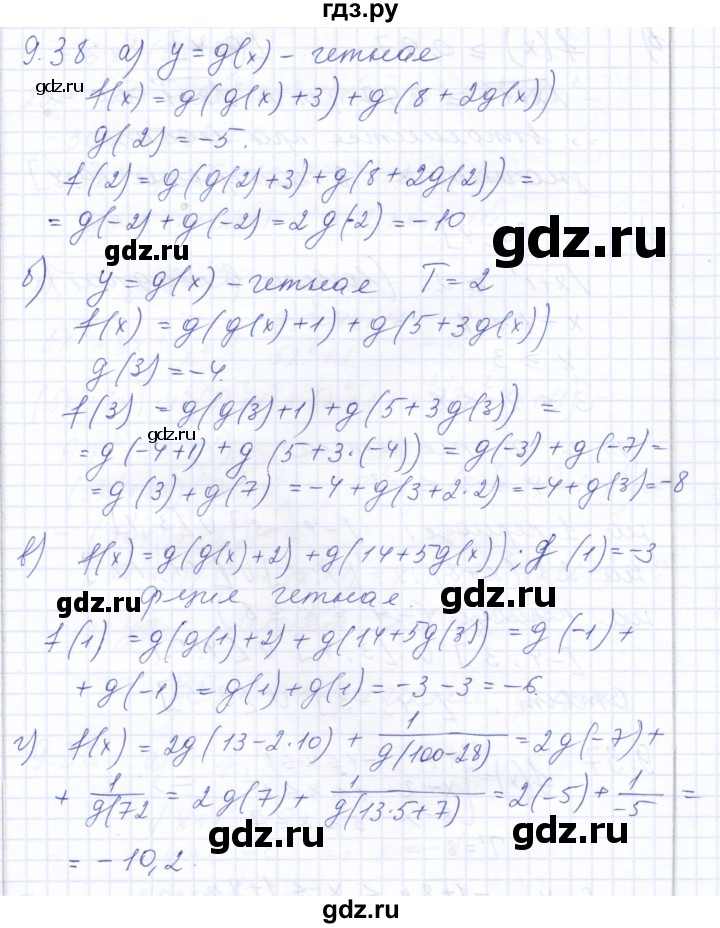 гдз.ру
9.38 а) y = g(x) - четная
f(x) = g(g(x)+3) + g(8+2g(x))
g(2) = -5.
f(2) = g(g(2)+3) + g(8+2g(2)) =
= g(-2) + g(-2) = 2g(-2) = -10
б) y = g(x) - четная T = 2
f(x) = g(g(x)+1) + g(5+3g(x))
g(3) = -4.
f(3) = g(g(3)+1) + g(5+3g(3)) =
= g(-4+1) + g(5+3·(-4)) = g(-3) + g(-7) =
= g(3) + g(7) = -4 + g(3+2·2) = -4 + g(3) = -8
в) f(x) = g(g(x)+2) + g(14+5g(x)); g(1) = -3
функция четная.
f(1) = g(g(1)+2) + g(14+5g(3)) = g(-1) +
+ g(-1) = g(1) + g(1) = -3 - 3 = -6.
г) f(x) = 2g(13-2·10) + 1/g(100-28) = 2g(-7) +
+ 1/g(72 = 2g(7) + 1/g(13·5+7) = 2(-5) + 1/-5 =
= -10,2.
gdz.ru
gdz.ru
gdz.ru
gdz.ru
gdz.ru
gdz.ru
gdz.ru
gdz.ru
gdz.ru
gdz.ru